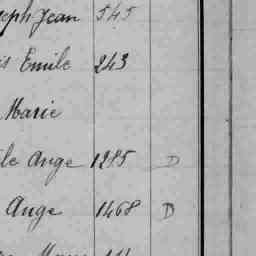 Jean 545
Emile 243
Marie
Ange 1285 D
Ange 1468 D